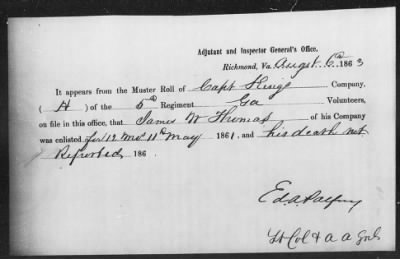 Adjutant and Inspector General's Office,
Richmond, Va. August 6th 1863
It appears from the Muster Roll of Capt King's Company,
(H) of the 5th Regiment Ga Volunteers,
on file in this office, that James W Thomas of his Company
was enlisted for 12 mos 11th May 1861, and his death not
Reported 186
Ed. A. Palfrey
Lt Col & A A Genl